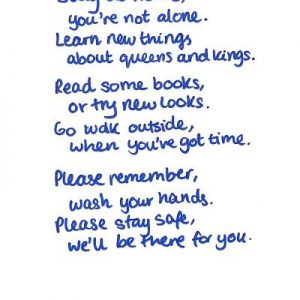 you're not alone.
Learn new things
about queens and kings.
Read some books,
or try new looks.
Go walk outside,
when you've got time.
Please remember,
wash your hands.
Please stay safe,
we'll be there for you.